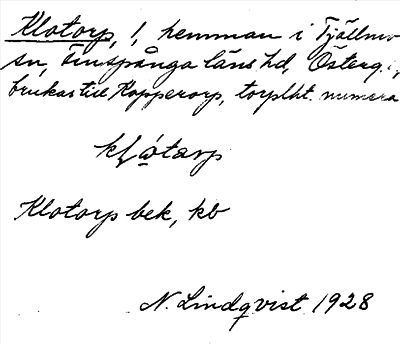 Klotorp, 1, hemman i Tjällmo
sn, Finspånga läns hd, Österg.,
brukas till Kopperorp, torplht. numera
Klotorp bek, kb
N. Lindqvist 1928